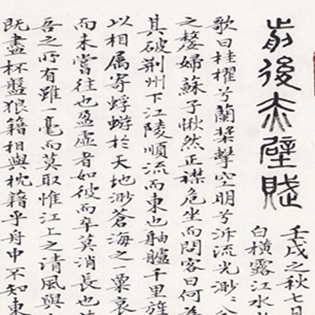 前後赤壁賦
壬戌之秋七月
白橫露江水
歌曰桂櫂兮蘭槳擊空明兮泝流光渺渺兮
之嫠婦蘇子愀然正襟危坐而問客曰何為
其破荊州下江陵順流而東也舳艫千里旌
以相屬寄蜉蝣於天地渺蒼海之一粟哀
而未嘗往也盈虛者如彼而卒莫消長也蓋
吾之所有雖一毫而莫取惟江上之清風與
既盡杯盤狼籍相與枕籍乎舟中不知東